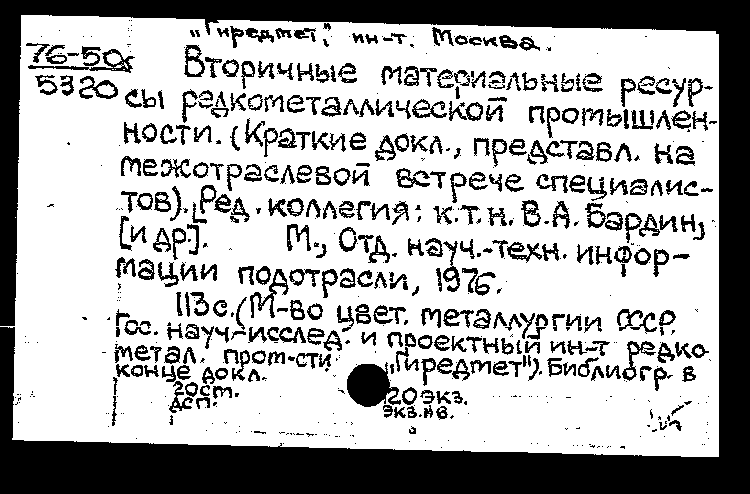 „Гиредмет", ин-т. Москва.
76-50к
5320
Вторичные материальные ресур-
сы редкометаллической промышлен-
ности. (Краткие докл., представл. на
межотраслевой встрече специалис-
тов). [Ред. коллегия: к.т.н. В.А. Бардин,
[и др.]. М., Отд. науч.-техн. инфор-
мации подотрасли, 1976.
113с. (М-во цвет. металлургии СССР.
Гос. науч-исслед. и проектный ин-т редко
метал. пром-сти „Гиредмет"). Библиогр. в
конце докл.
20ст. 120экз.
дсп. экз.нв.